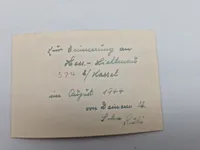 Zur Erinnerung an
Hess.-Lichtenau
b/ Kassel
im August 1944
von Deinem